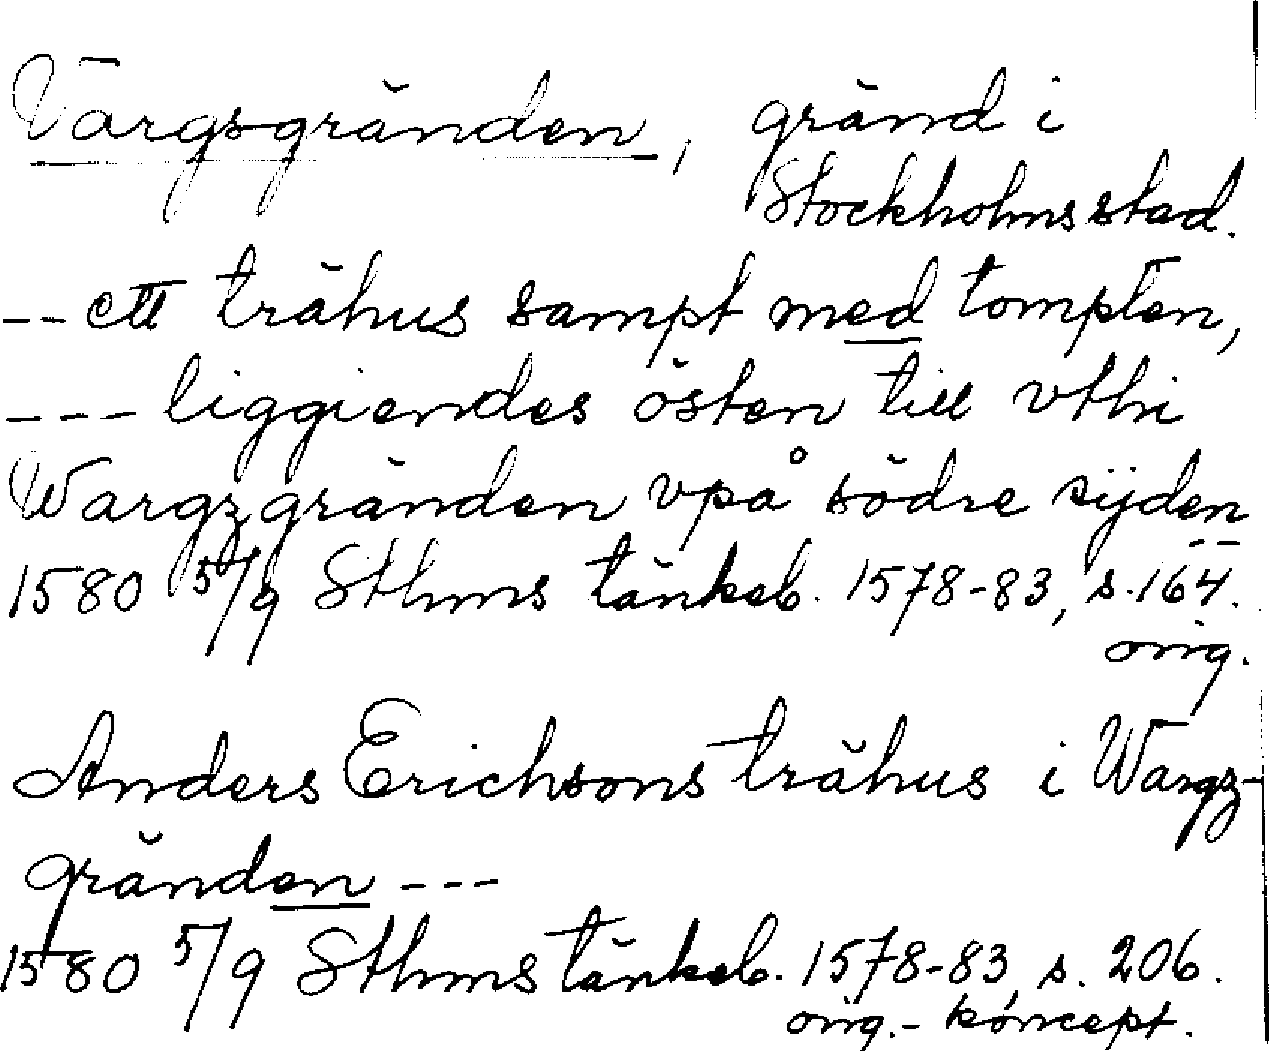 Vargsgränden, gränd i
Stockholms stad.
-- ett trähus sampt med tompten,
--- liggiendes östen till vthi
Wargzgränden vpå södre sijden --
1580 5/9 Sthms tänkeb. 1578-83, s. 164.
orig.
Anders Erichsons trähus i Wargz-
gränden ---
1580 5/9 Sthms tänkeb. 1578-83, s. 206.
orig.- koncept.